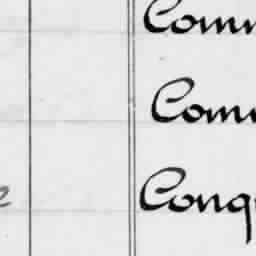 Comm
Com
Conq